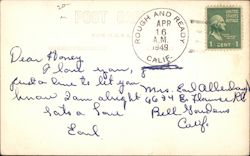 20¢
POST CARD
ROUGH AND READY
APR
16
A.M.
1949
CALIF.
1 CENT 1
Dear Honey
I love you,
just a line to let you
know I am alright
Lots a Love
Earl
Mrs. Earl
Bell Gardens
Calif.